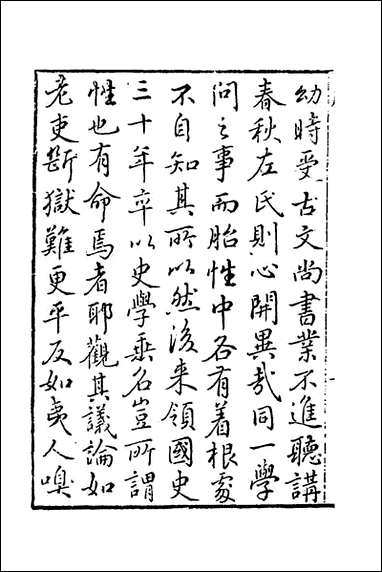 幼時受古文尚書業不進聽講
春秋左氏則心開異哉同一學
问之事而胎性中各有着根處
不自知其所以然後来領國史
三十年卒以史學垂名豈所謂
性也有命焉者耶觀其議論如
老吏斷獄難更平反如夷人嗅